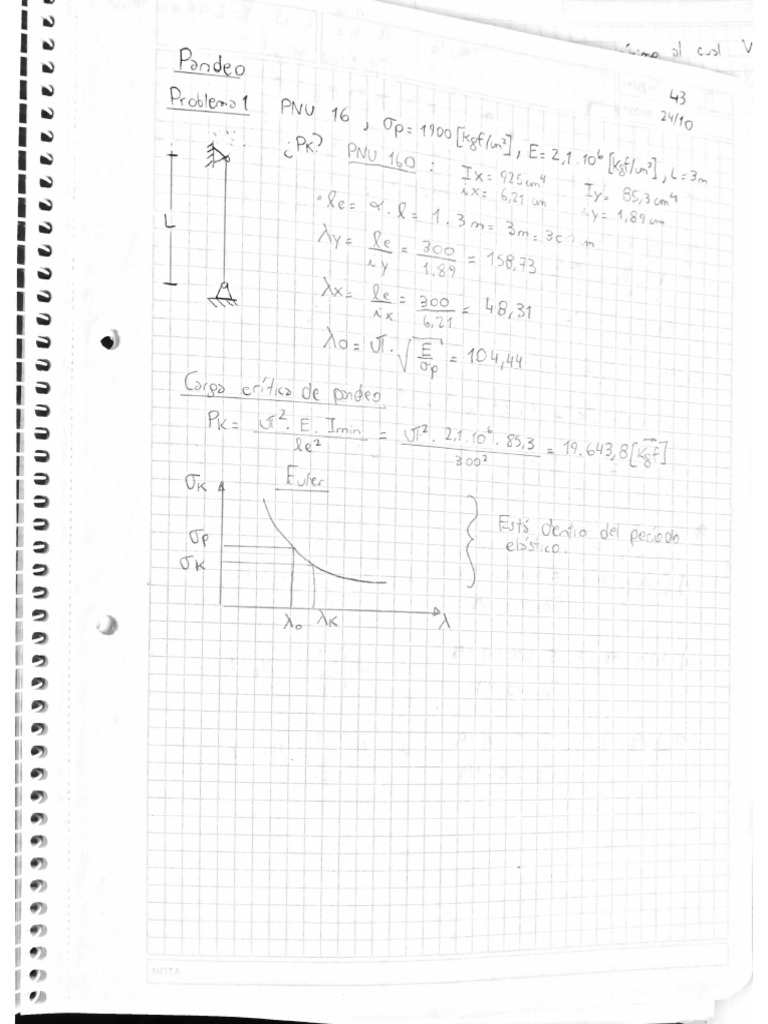 al cual V
43
24/10
Pandeo
Problema 1 PNU 16, σp = 1900 [kgf/cm²], E = 2,1.10⁶ [kgf/cm²], L = 3m
¿Pk? PNU 160 : Ix = 925 cm⁴ Iy = 85,3 cm⁴
ix = 6,21 cm iy = 1,89 cm
L
• le = α.l = 1.3m = 3m = 300 m
λy = le/iy = 300/1,89 = 158,73
λx = le/ix = 300/6,21 = 48,31
λo = π.√(E/σp) = 104,44
Carga crítica de pandeo
Pk = π².E.Imin/le² = π².2,1.10⁶.85,3/300² = 19.643,8 [kgf]
σk Euler
σp
σk
λo λk λ
Está dentro del período
elástico.
NOTA